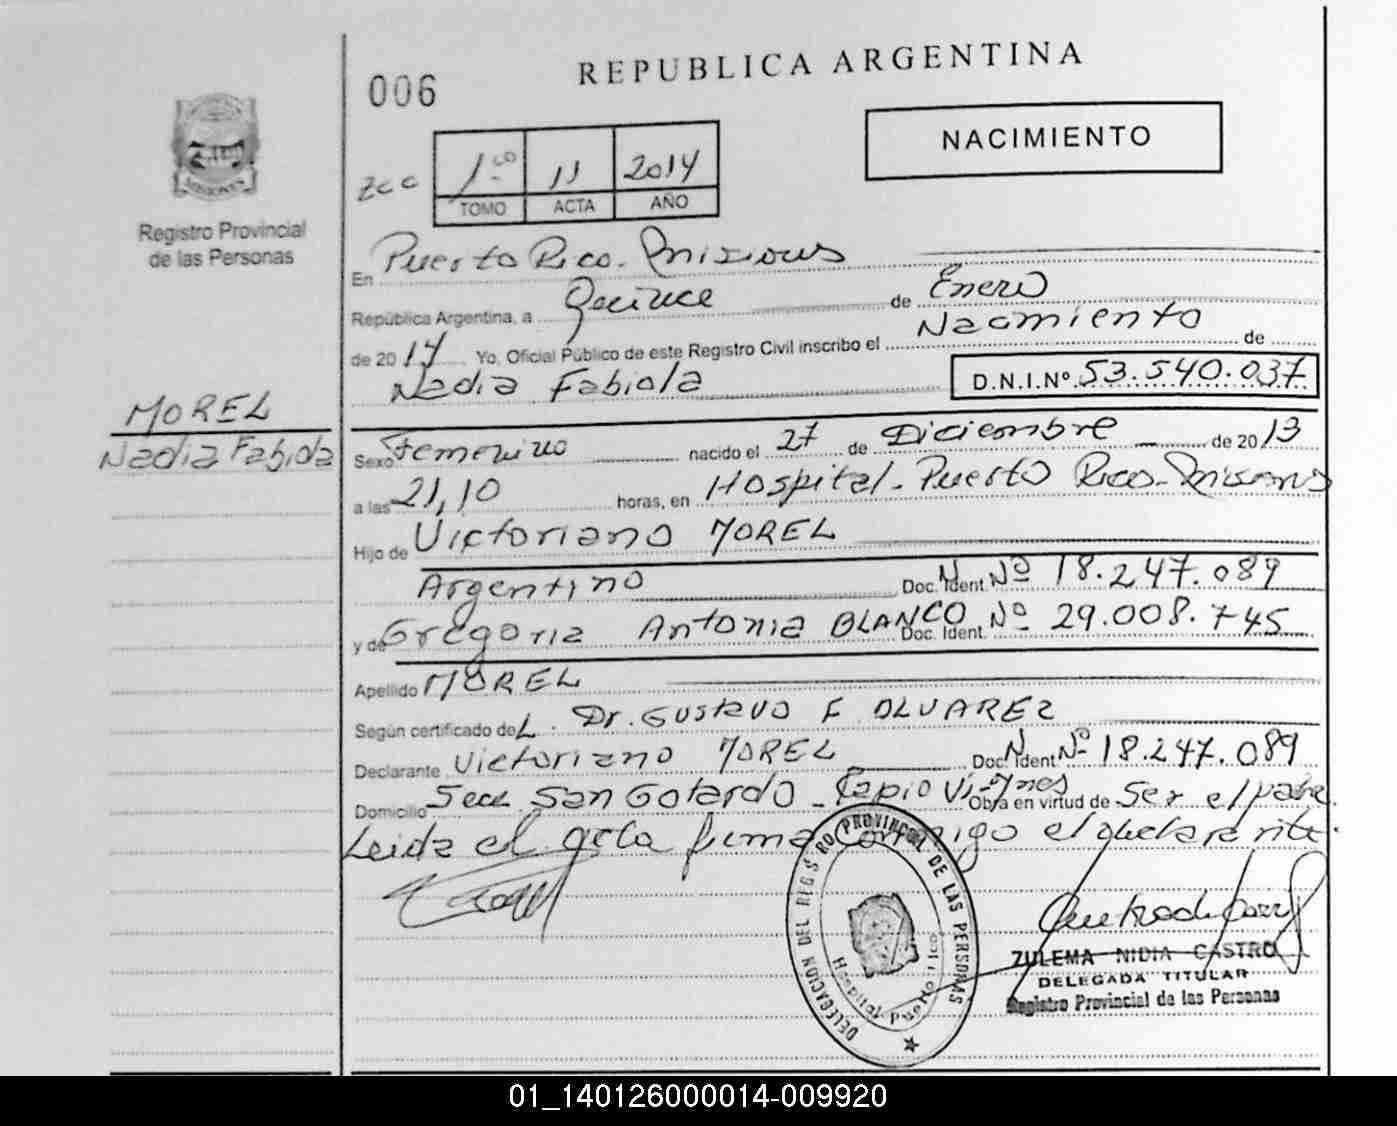 006
REPUBLICA ARGENTINA
NACIMIENTO
MISIONES
Registro Provincial
de las Personas
1º 11 2014
TOMO ACTA AÑO
En Puerto Rico. Misiones
República Argentina, a Quince de Enero
de 2014 Yo, Oficial Público de este Registro Civil inscribo el Nacimiento de
Nadia Fabiola D.N.I.Nº 53.540.037
MOREL
Nadia Fabiola
Sexo Femenino nacido el 27 de Diciembre de 2013
a las 21,10 horas, en Hospital - Puerto Rico - Misiones
Hijo de Victoriano MOREL
Argentino Doc. Ident. Nº 18.247.089
y de Gregoria Antonia BLANCO Doc. Ident. Nº 29.008.745
Apellido MOREL
Según certificado del Dr. Gustavo F. ALVAREZ
Declarante Victoriano MOREL Doc. Ident. Nº 18.247.089
Domicilio Secc. San Gotardo - Obra en virtud de Ser el padre.
Leida el acta firma conmigo el declarante.
DELEGACION DEL REGISTRO PROVINCIAL DE LAS PERSONAS
Hospital Puerto Rico
ZULEMA NIDIA CASTRO
DELEGADA TITULAR
Registro Provincial de las Personas
01_140126000014-009920